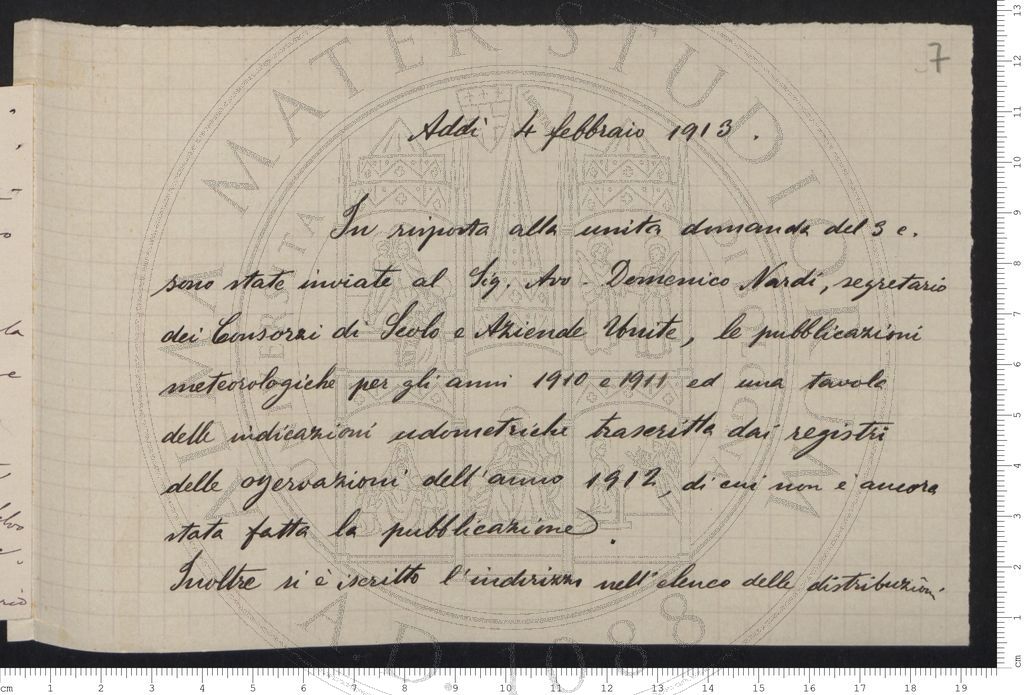 7
Addì 4 febbraio 1913.
In risposta alla unita domanda del 3 c.
sono state inviate al Sig. Avv. Domenico Nardi, segretario
dei Consorzi di Scolo e Aziende Unite, le pubblicazioni
meteorologiche per gli anni 1910 e 1911 ed una tavola
delle indicazioni udometriche trascritta dai registri
delle osservazioni dell'anno 1912, di cui non è ancora
stata fatta la pubblicazione.
Inoltre si è iscritto l'indirizzo nell'elenco delle distribuzioni
ALMA MATER STUDIORUM
A.D. 1088
cm 1 2 3 4 5 6 7 8 9 10 11 12 13 14 15 16 17 18 19
cm 1 2 3 4 5 6 7 8 9 10 11 12 13